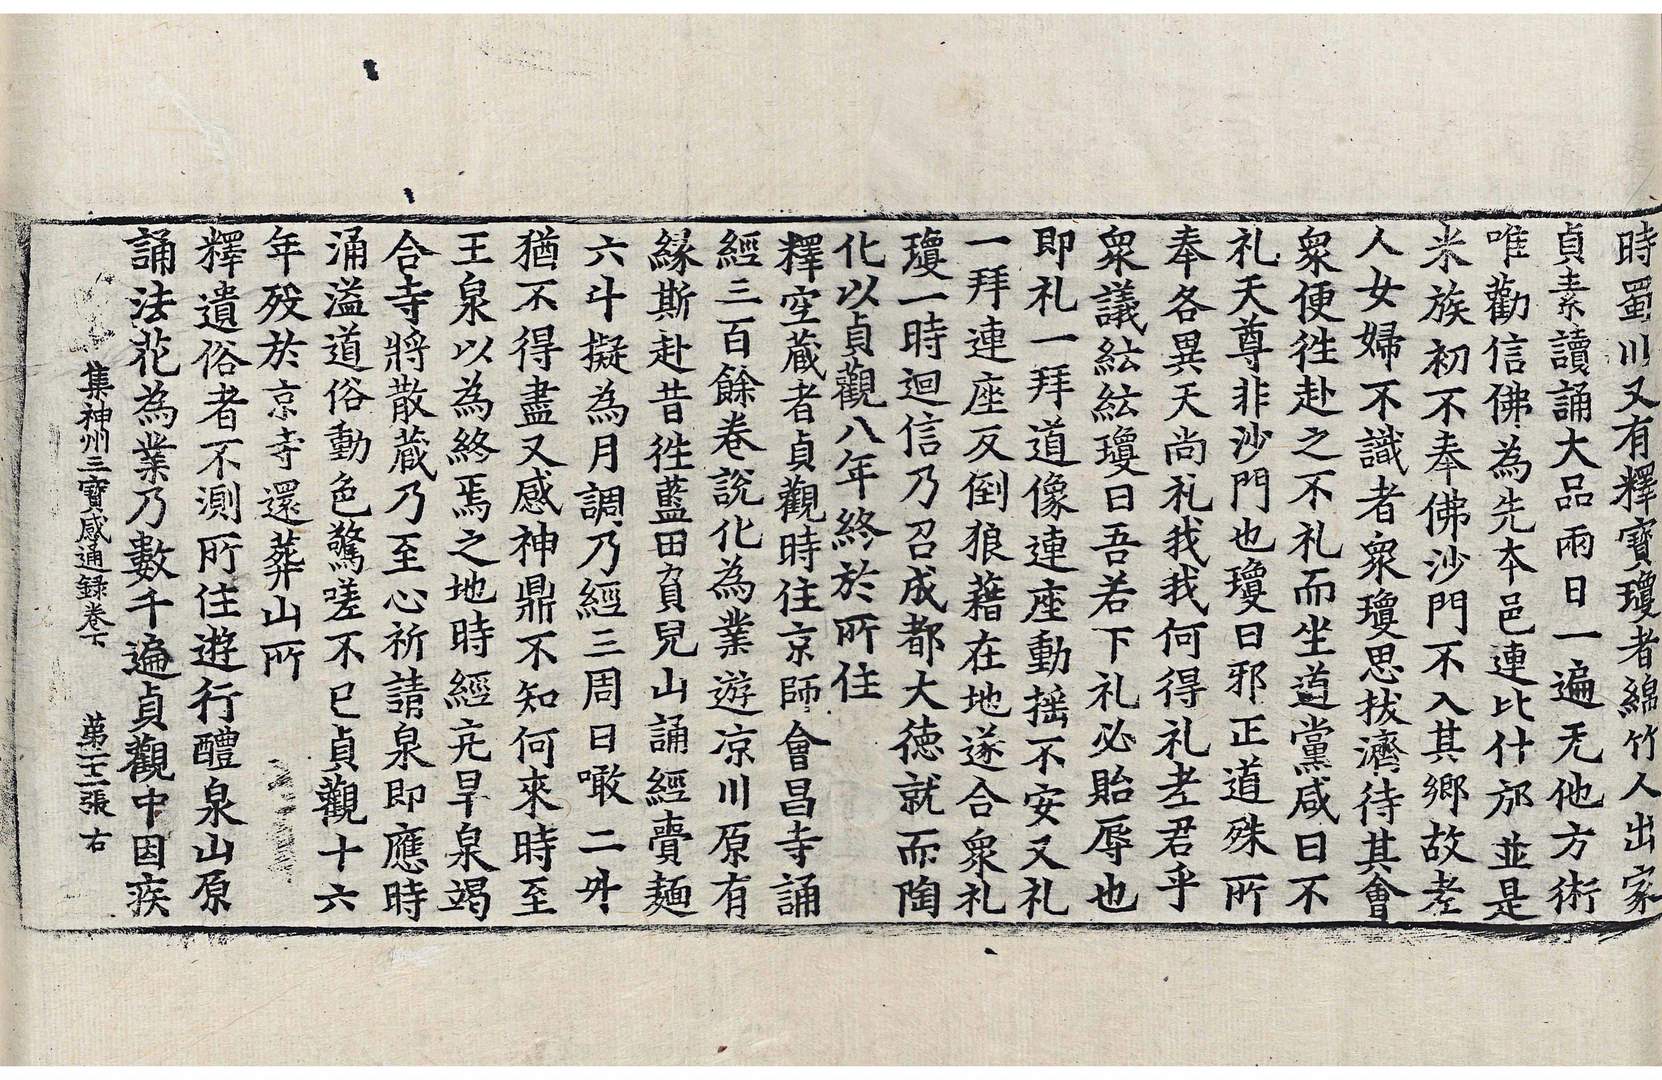 時蜀川又有釋寶瓊者綿竹人出家
貞素讀誦大品兩日一遍无他方術
唯勸信佛為先本邑連比什邡並是
米族初不奉佛沙門不入其鄉故老
人女婦不識者眾瓊思拔濟待其會
眾便徃赴之不礼而坐道黨咸曰不
礼天尊非沙門也瓊曰邪正道殊所
奉各異天尚礼我我何得礼老君乎
眾議紜紜瓊曰吾若下礼必貽辱也
即礼一拜道像連座動搖不安又礼
一拜連座反倒狼藉在地遂合眾礼
瓊一時迴信乃召成都大德就而陶
化以貞觀八年終於所住
釋空藏者貞觀時住京師會昌寺誦
經三百餘卷說化為業遊凉川原有
緣斯赴昔徃藍田負兒山誦經賷麺
六斗擬為月調乃經三周日噉二升
猶不得盡又感神鼎不知何來時至
王泉以為終焉之地時經亢旱泉竭
合寺將散藏乃至心祈請泉即應時
涌溢道俗動色驚嗟不已貞觀十六
年歿於京寺還葬山所
集神州三寶感通録卷下 第三十二張 右
釋遺俗者不測所住遊行醴泉山原
誦法花為業乃數千遍貞觀中因疾